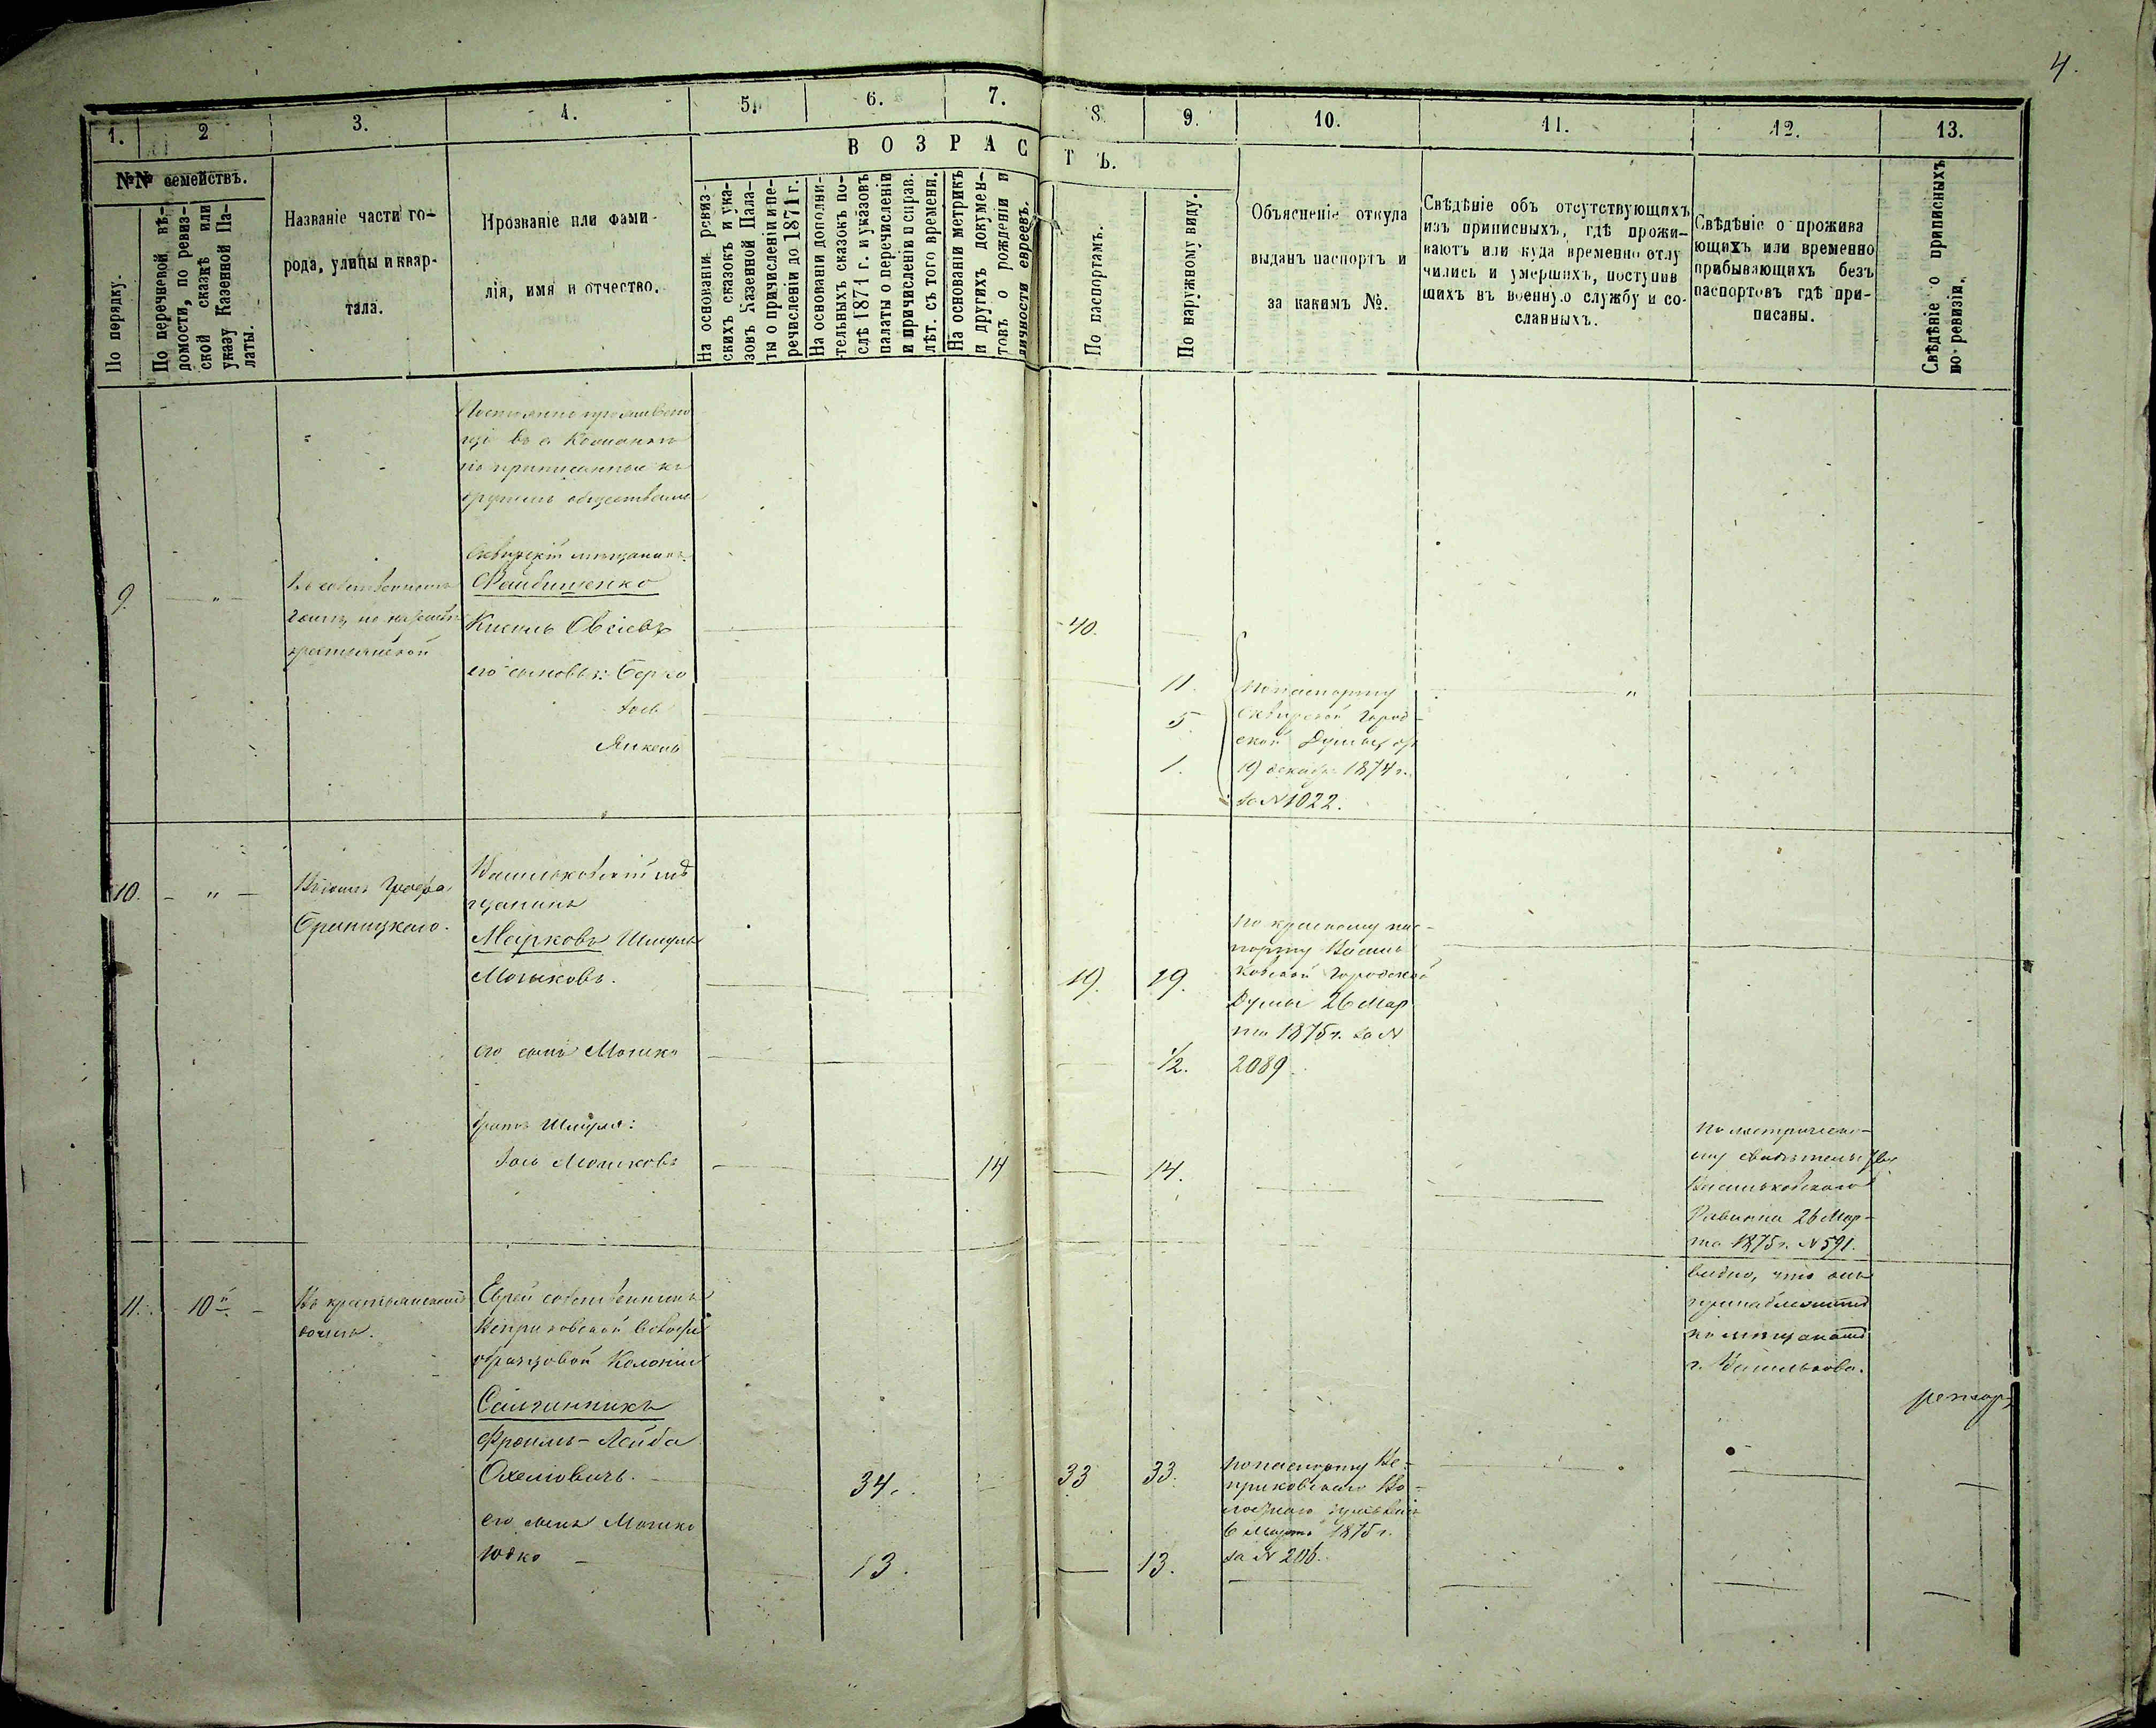 4.
1.
2
3.
4.
5.
6.
7.
8
9.
10.
11.
12.
13.
В О З Р А С Т Ъ.
№№ семействъ.
По порядку.
По перечневой вѣ-
домости, по ревиз-
ской сказкѣ или
указу Казенной Па-
латы.
Названіе части го-
рода, улицы и квар-
тала.
Прозваніе или фами-
лія, имя и отчество.
На основаніи ревиз-
скихъ сказокъ и ука-
зовъ Казенной Пала-
ты о причисленіи и пе-
речисленіи до 1871 г.
На основаніи дополни-
тельныхъ сказокъ по-
слѣ 1871 г. и указовъ
палаты о перечисленіи
и причисленіи п справ.
лѣт. съ того времени.
На основаніи метрикъ
и другихъ докумен-
товъ о рожденіи и
личности евреевъ.
По паспортамъ.
По наружному виду.
Объясненіе откуда
выданъ паспортъ и
за какимъ №.
Свѣдѣніе объ отсутствующихъ
изъ приписныхъ, гдѣ прожи-
ваютъ или куда временно отлу
чились и умершихъ, поступив
шихъ въ военную службу и со-
сланныхъ.
Свѣдѣніе о прожива
ющихъ или временно
прибывающихъ безъ
паспортовъ гдѣ при-
писаны.
Свѣдѣніе о приписныхъ
по ревизіи.
Постоянно проживаю
щіе въ с.
но приписанные къ
другимъ обществамъ
Сквирскій мѣщанинъ
9.
"
Въ собственномъ
домѣ, на
крестьянской
Файбишенко
Кисель Овсіевъ
40.
его сыновья: Берко
11.
Іось
5
Янкель
1.
по паспорту
Сквирской Город-
ской Думы отъ
19 декабр. 1874 г.
за № 1022.
"
10.
"
Въ домѣ Графа
Браницкаго.
Васильковскій мѣ
щанинъ
Марковъ Шмуль
Мошковъ.
19.
19.
По красному пас-
порту Василь
ковской Городской
Думы 26 Мар
та 1875 г. за №
2089
его сынъ Мошко
1/2.
братъ Шмуля:
Іось Мошковъ
14
14.
По метрическо-
му свидѣтельству
Васильковскаго
Раввина 26 Мар-
та 1875 г. № 591.
видно, что онъ
принадлежитъ
къ мѣщанамъ
г. Василькова.
11.
10й
Въ крестьянскомъ
домѣ.
Еврей собственникъ
Веприковской
образцовой Колоніи
Фроимъ-Лейба
34.
33
33.
по паспорту Ве-
приковскаго Во-
лостнаго правленія
6 Марта 1875 г.
за № 206.
его сынъ Мошко
Юдко
13.
13.